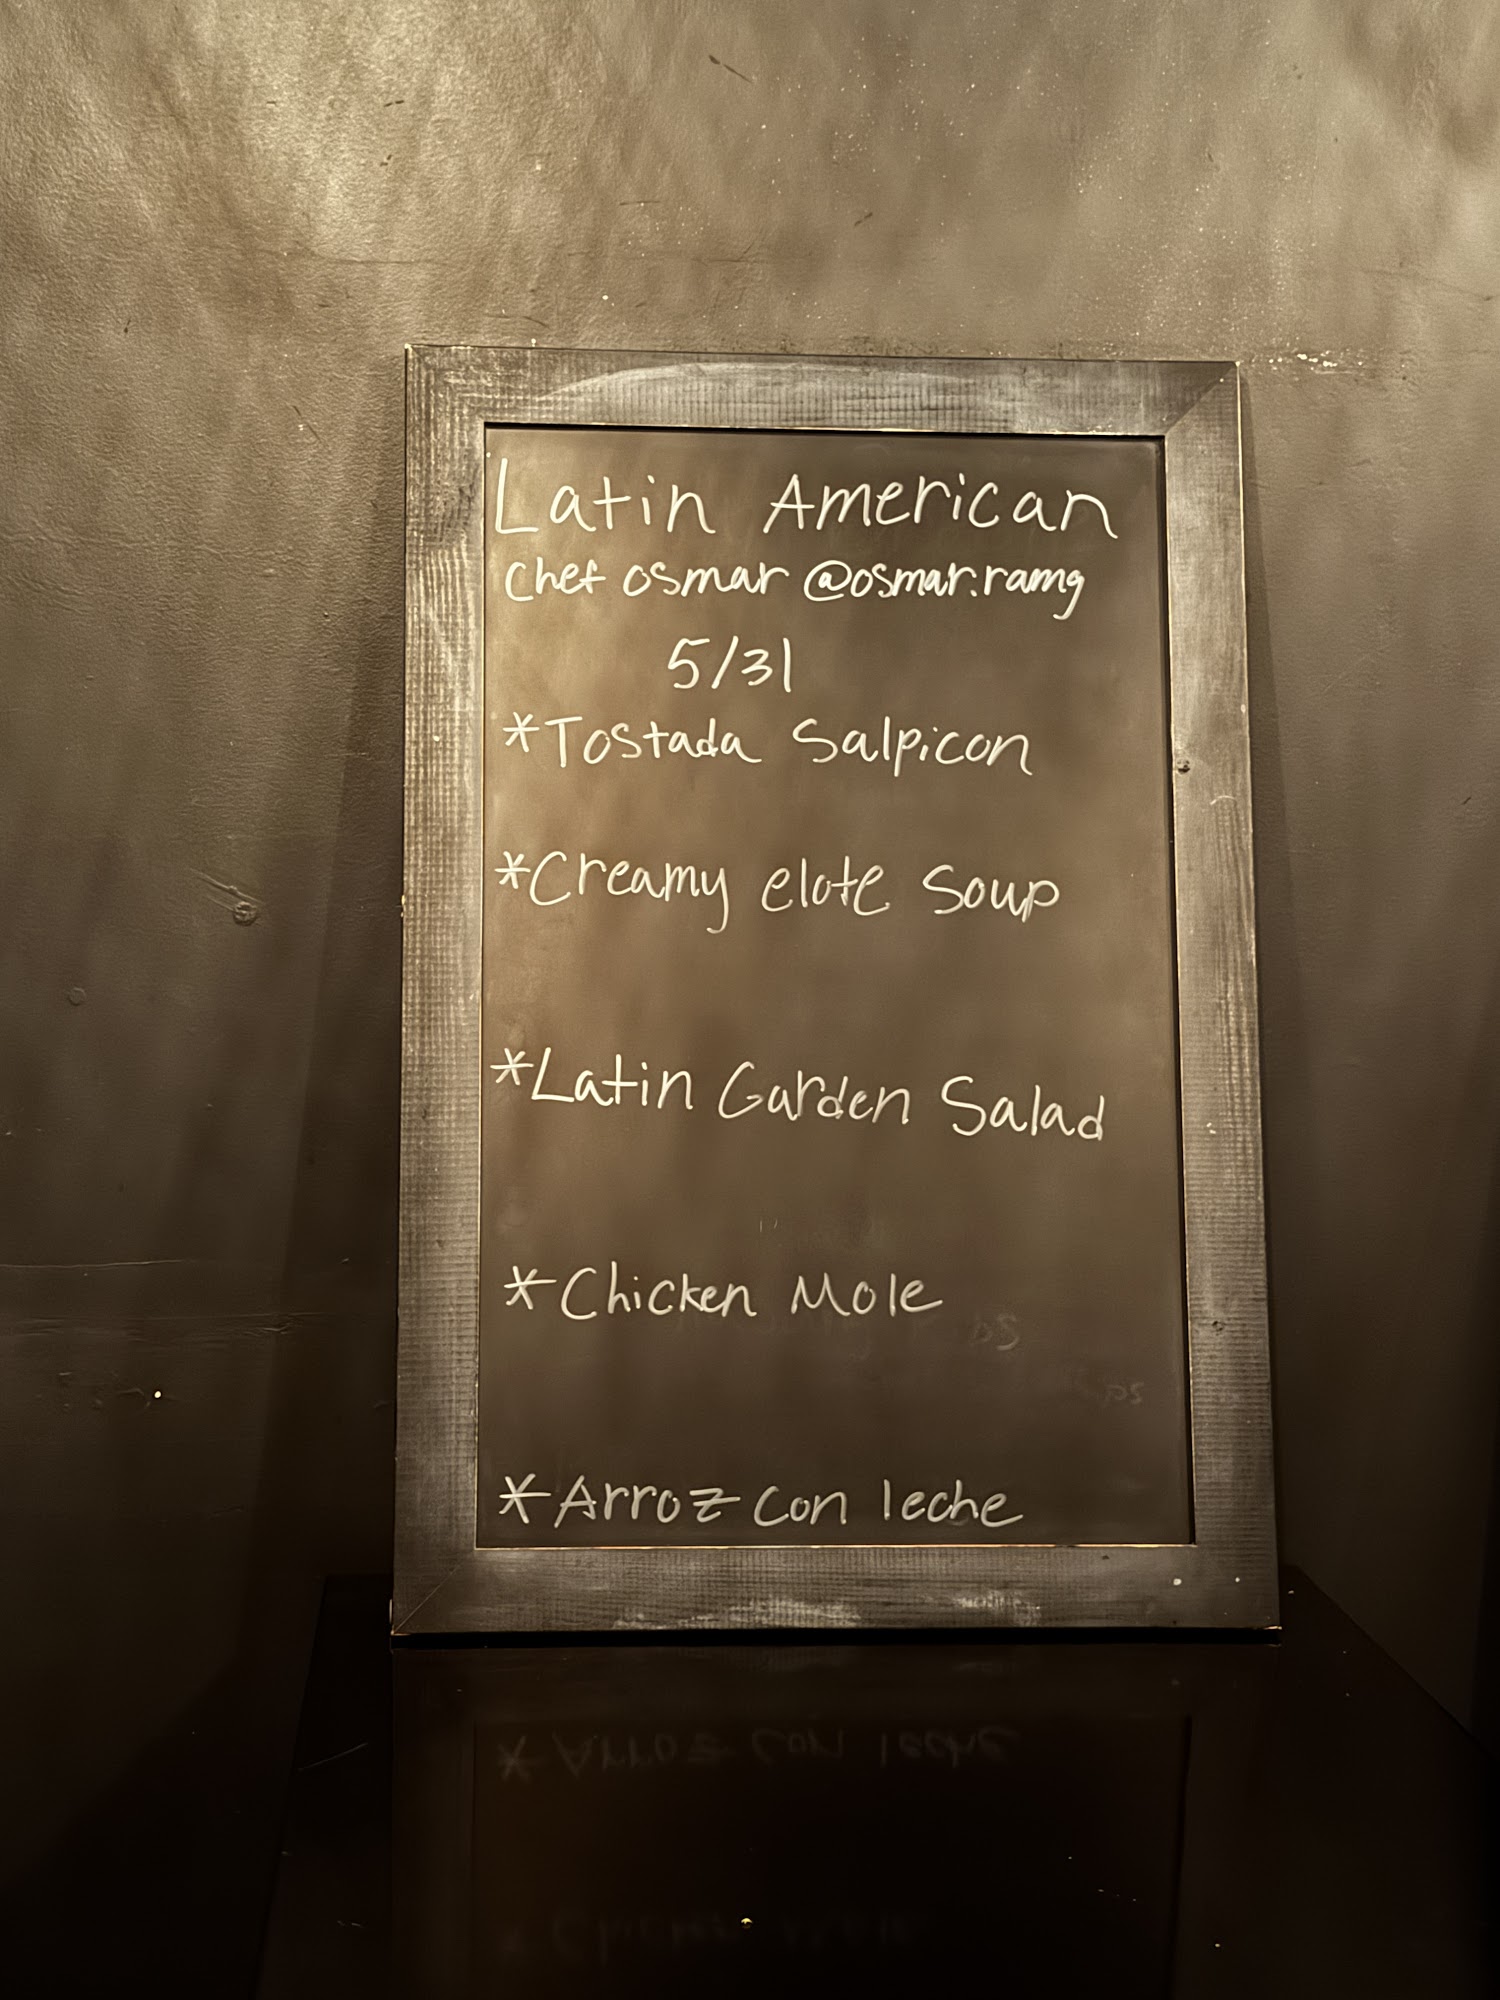 Latin American
Chef Osmar @osmar.ramg
5/31
*Tostada Salpicon
*Creamy elote Soup
*Latin Garden Salad
*Chicken Mole
*Arroz con leche